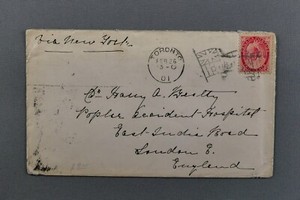 via New York
TORONTO
01
Dr Harry A. Beatty
Poplar Accident Hospital
East India Road
London E.
England